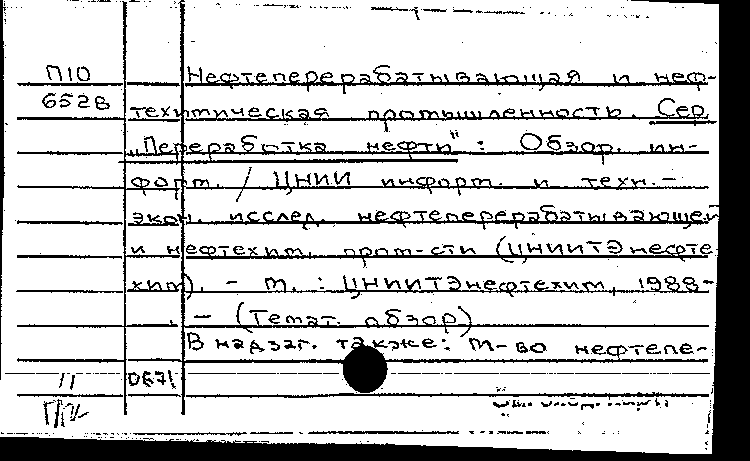 П10 Нефтеперерабатывающая и неф-
6528 техимическая промышленность. Сер.
"Переработка нефти": Обзор. ин-
форм. / ЦНИИ информ. и техн.-
экон. исслед. нефтеперерабатывающей
и нефтехим. пром-сти (ЦНИИТЭнефте
хим). - М. : ЦНИИТЭнефтехим, 1988-
. - (Темат. обзор)
В надзаг. также: М-во нефтепе-
11 0671